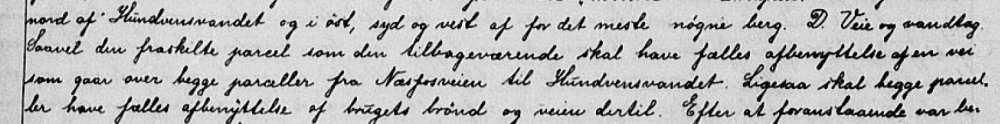 nord af Hundvensvandet og i öst, syd og vest af for det meste nögne berg. D. Veie og vandtag.
Saavel den fraskilte parcel som den tilbageværende skal have fælles afbenyttelse af en vei
som gaar over begge parceller fra Næsfosveien til Hundvensvandet. Ligesaa skal begge parcel-
ler have fælles afbenyttelse af brugets brönd og veien dertil. Efter at foranstaaende var be-